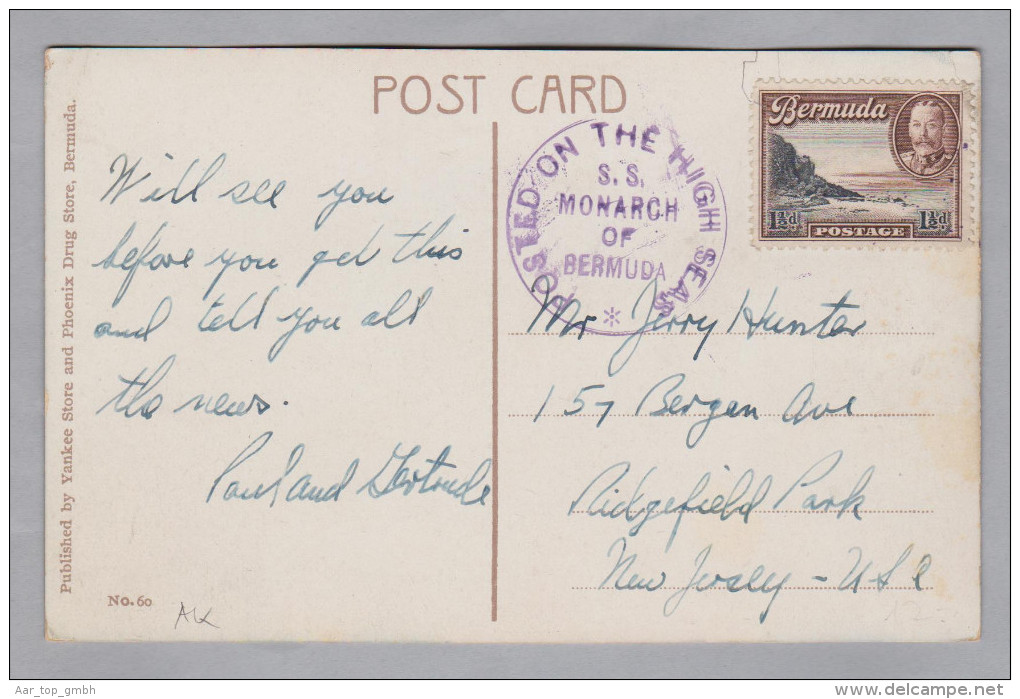 POST CARD
Published by Yankee Store and Phoenix Drug Store, Bermuda.
Will see you
before you get this
and tell you all
the news.
Paul and Gertrude
No. 60
AK
POSTED ON THE HIGH SEAS
S.S.
MONARCH
OF
BERMUDA
*
Bermuda
1½d POSTAGE 1½d
Mr Jerry Hunter
157 Bergen Ave
Ridgefield Park
New Jersey - USA
Aar_top_gmbh
www.delcampe.net